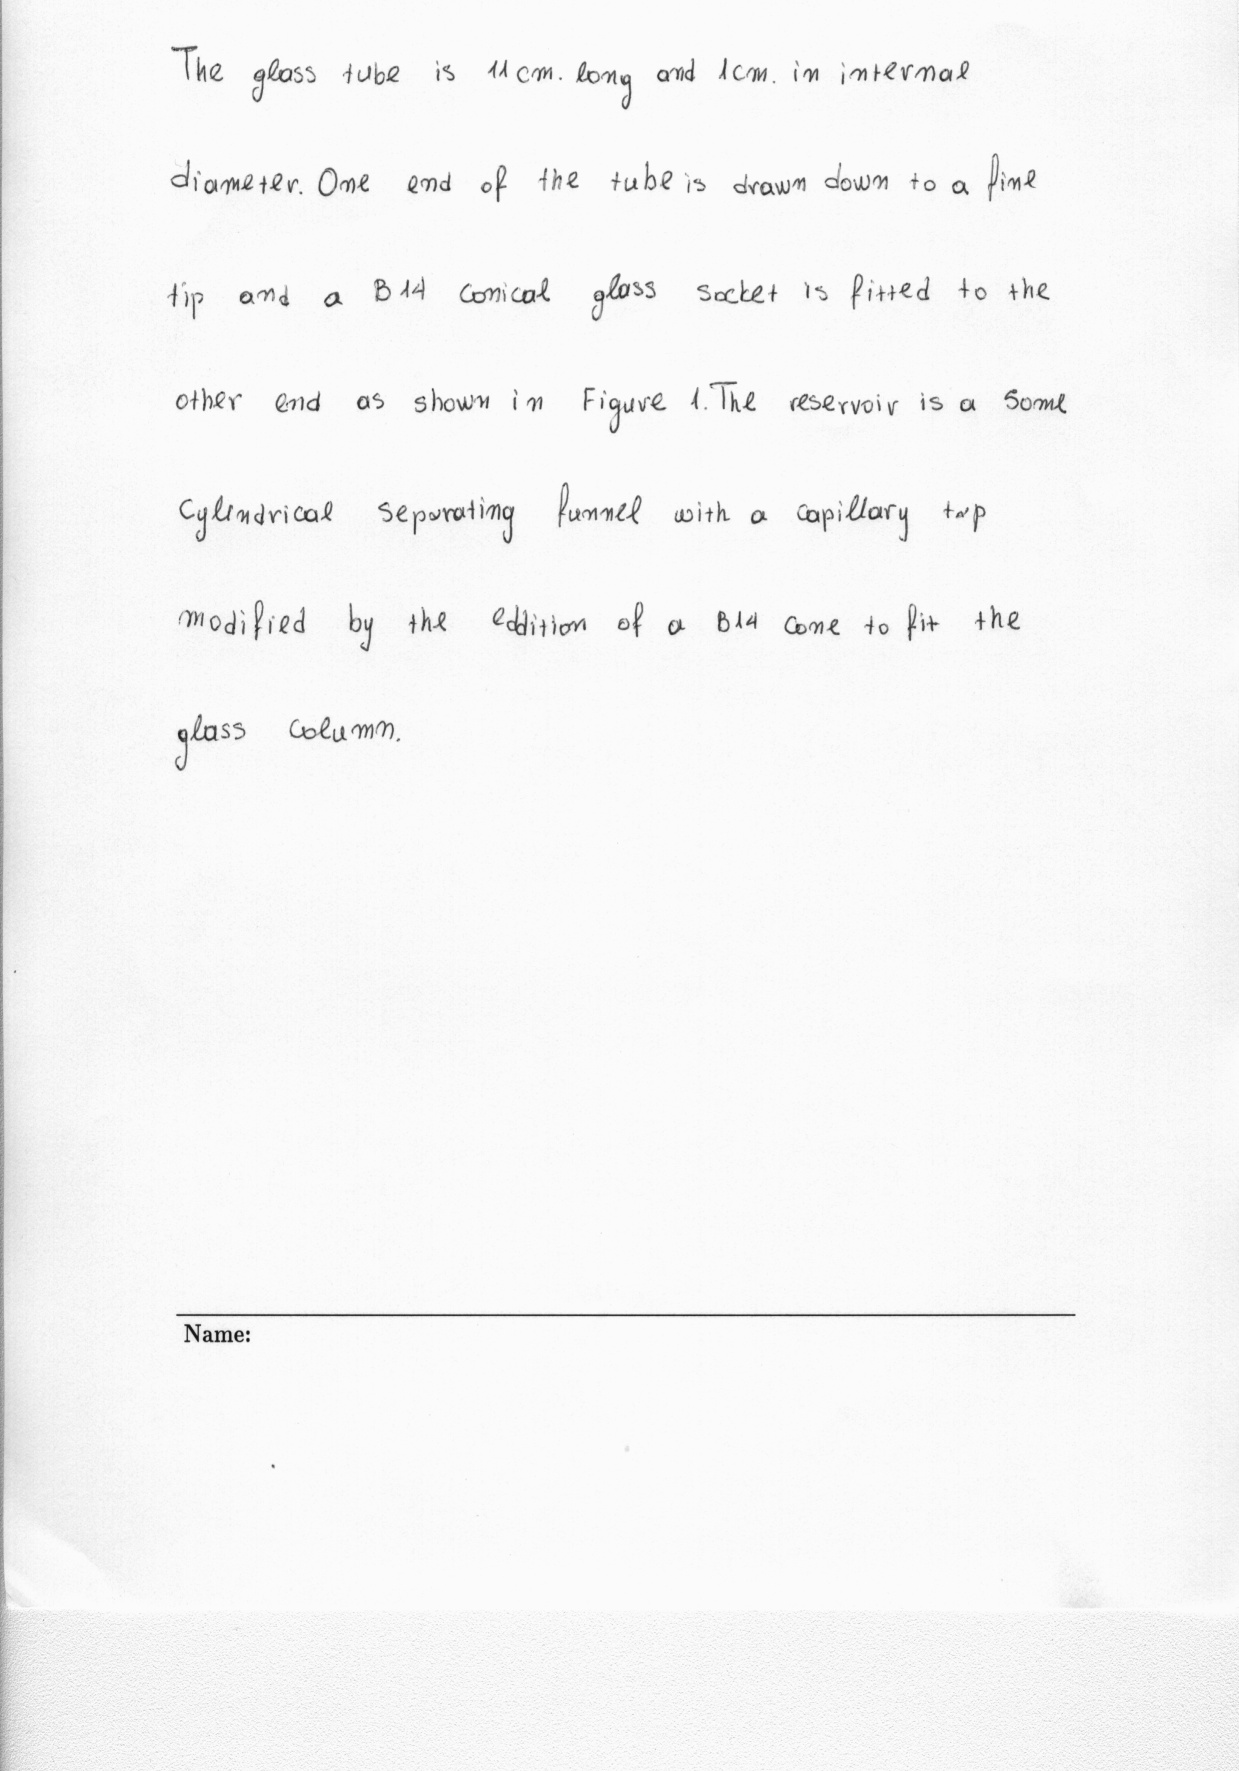 The glass tube is 11cm. long and 1cm. in internal
diameter. One end of the tube is drawn down to a fine
tip and a B14 conical glass socket is fitted to the
other end as shown in Figure 1. The reservoir is a some
cylindrical separating funnel with a capillary tap
modified by the eddition of a B14 cone to fit the
glass column.
Name: